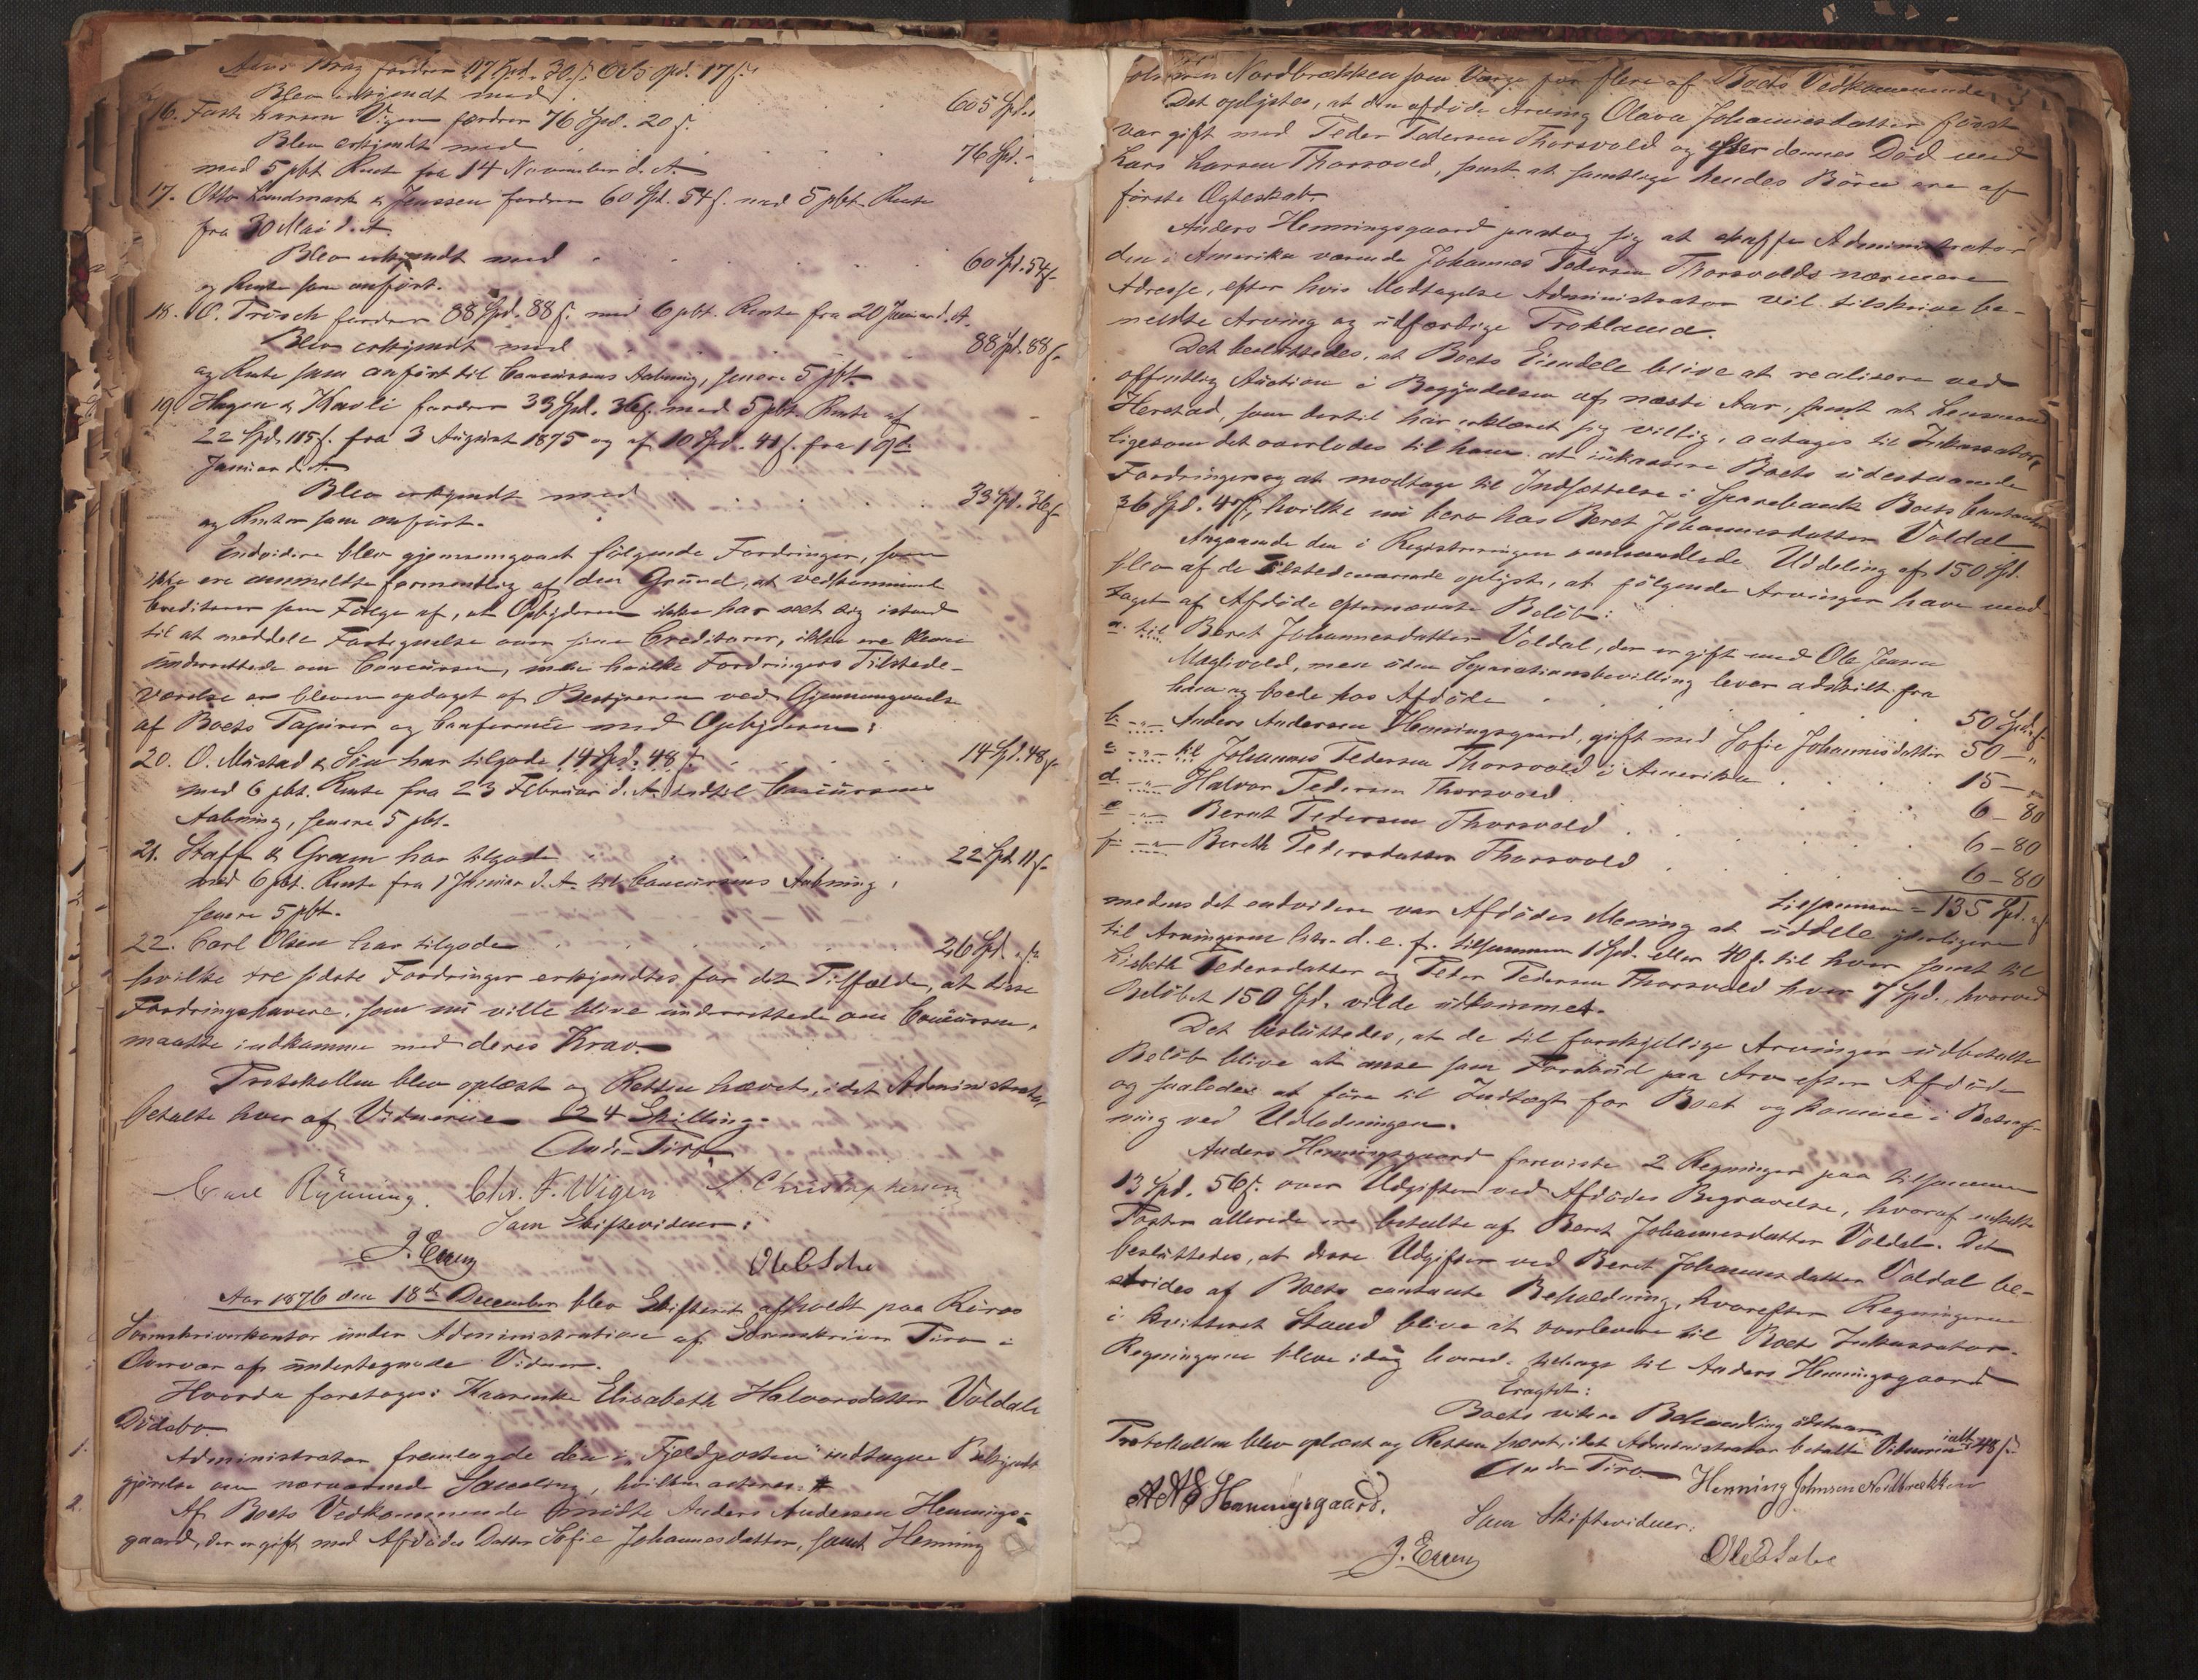 Blev erkjendt med 605 Spd.
16. Larsen Vigen fordrer 76 Spd. 20 s.
Blev erkjendt med 76 Spd.
med 5 pCt. Rente fra 14 November d. A.
17. Otto Landmark & Jenssen fordrer 60 Spd. 54 s. med 5 pCt. Rente
fra 30 Mai d. A.
Blev erkjendt med 60 Spd. 54 s.
og Rente som anført.
18. O. Trøsch fordrer 88 Spd. 88 s. med 6 pCt. Rente fra 20 Januar d. A.
Blev erkjendt med 88 Spd. 88 s.
og Rente som anført til Concursens Aabning, senere 5 pCt.
19. Hagen & Kavli fordrer 33 Spd. 36 s. med 5 pCt. Rente af
22 Spd. 115 s. fra 3 August 1875 og af 10 Spd. 41 s. fra
Januar d. A.
Blev erkjendt med 33 Spd. 36 s.
og Renter som anført.
Endvidere blev gjennemgaaet følgende Fordringer, som
ikke ere anmeldte formentlig af den Grund, at vedkommende
Creditorer som Følge af, at Opbyderen ikke har seet sig istand
til at meddele Fortegnelse over sine Creditorer, ikke ere blevne
underrettede om Concursen, men hvilke Fordringers Tilstede-
værelse er bleven opdaget af Bestyreren ved Gjennemgaaelse
af Boets Papirer og Conference med Opbyderen:
20. O. Mustad & Søn har tilgode 14 Spd. 48 s. 14 Spd. 48 s.
med 6 pCt. Rente fra 23 Februar d. A. indtil Concursens
Aabning, senere 5 pCt.
21. Staff & Gram har tilgode 22 Spd. 11 s.
med 6 pCt. Rente fra 1 Januar d. A. til Concursens Aabning,
senere 5 pCt.
22. Carl Olsen har tilgode 26 Spd. " s.
hvilke tre sidste Fordringer erkjendtes for det Tilfælde, at disse
Fordringshavere, som nu ville blive underrettede om Concursen,
maatte indkomme med deres Krav.
Protokollen blev oplæst og Retten hævet, idet Administrator
betalte hver af Vidnerne 24 Skilling.
Andr. Piro
Carl Rynning. Chr. F. Wigen Christophersen
Som Skiftevidner:
J. Engen Ole
Aar 1876 den 18de December blev Skifteret afholdt paa Røros
Sorenskriverkontor under Administration af Sorenskriver Piro i
Overvær af undertegnede Vidner.
Hvorda foretoges: Karenke Elisabeth Halvorsdatter Voldals
Dødsbo.
1. Administrator fremlagde den i "Fjeldposten" indtagne Bekjendt-
gjørelse om nærværende Samling, hvilken acteres: #
2. Af Boets Vedkommende mødte Anders Andersen Hennings-
gaard, der er gift med Afdødes Datter Sofie Johannesdatter, samt Henning
Johnsen Nordbrækken som Værge for flere af Boets Vedkommende.
Det oplystes, at den afdøde Arving Olava Johannesdatter først
var gift med Peder Pedersen Thorsvold og efter dennes Død med
Lars Larsen Thorsvold, samt at samtlige hendes Børn ere af
første Ægteskab.
Anders Henningsgaard paatog sig at skaffe Administrator
den i Amerika værende Johannes Pedersen Thorsvolds nærmere
Adresse, efter hvis Modtagelse Administrator vil tilskrive be-
meldte Arving og udfærdige Proklama.
Det besluttedes, at Boets Eiendele blive at realisere ved
offentlig Auction i Begyndelsen af næste Aar, samt at Lensmand
Herstad, som dertil har erklæret sig villig, antages til Inkassator,
ligesom det overlodes til ham at inkassere Boets udestaaende
Fordringer og at modtage til Indsættelse i Sparebank Boets Contanter
36 Spd. 47 s., hvilke nu bero hos Beret Johannesdatter Voldal.
Angaaende den i Registreringen omhandlede Uddeling af 150 Spd.
blev af de Tilstedeværende oplyst, at følgende Arvinger have mod-
taget af Afdøde efternævnte Beløb:
a. til Beret Johannesdatter Voldal, der er gift med Ole Jensen
Møglivold, men uden Separationsbevilling lever adskilt fra
ham og boede hos Afdøde 50 Spd. " s.
b. - " - Anders Andersen Henningsgaard, gift med Sofie Johannesdatter 50 - "
c. - " - til Johannes Pedersen Thorsvold i Amerika 15 - "
d. - " - Halvor Pedersen Thorsvold 6 - 80
e. - " - Bernt Pedersen Thorsvold 6 - 80
f. - " - Bereth Pedersdatter Thorsvold 6 - 80
tilsammen = 135 Spd. " s.
medens det endvidere var Afdødes Mening at uddele yderligere
til Arvingerne litr. d. e. f. tilsammen 1 Spd. eller 40 s. til hver samt til
Lisbeth Pedersdatter og Peter Pedersen Thorsvold hver 7 Spd., hvorved
Beløbet 150 Spd. vilde udkomme.
Det besluttedes, at de til forskjellige Arvinger udbetalte
Beløb blive at anse som Forskud paa Arv efter Afdøde
og saaledes at føre til Indtægt for Boet og komme i Betragt-
ning ved Udlodningen.
Anders Henningsgaard foreviste 2 Regninger paa tilsammen
13 Spd. 56 s. over Udgifter ved Afdødes Begravelse, hvoraf enkelte
Poster allerede ere betalte af Beret Johannesdatter Voldal. Det
besluttedes, at disse Udgifter ved Beret Johannesdatter Voldal be-
strides af Boets contante Beholdning, hvorefter Regningerne
i kvitteret Stand blive at overlevere til Boets Inkassator.
Regningerne bleve idag leverede tilbage til Anders Henningsgaard.
Eragtet:
Boets videre Behandling udstaar.
Protokollen blev oplæst og Retten hævet, idet Administrator betalte Vidnerne ialt 48 s.
Andr. Piro. Henning Johnsen Nordbrækken
A A S Henningsgaard.
Som Skiftevidner:
J. Engen Ole